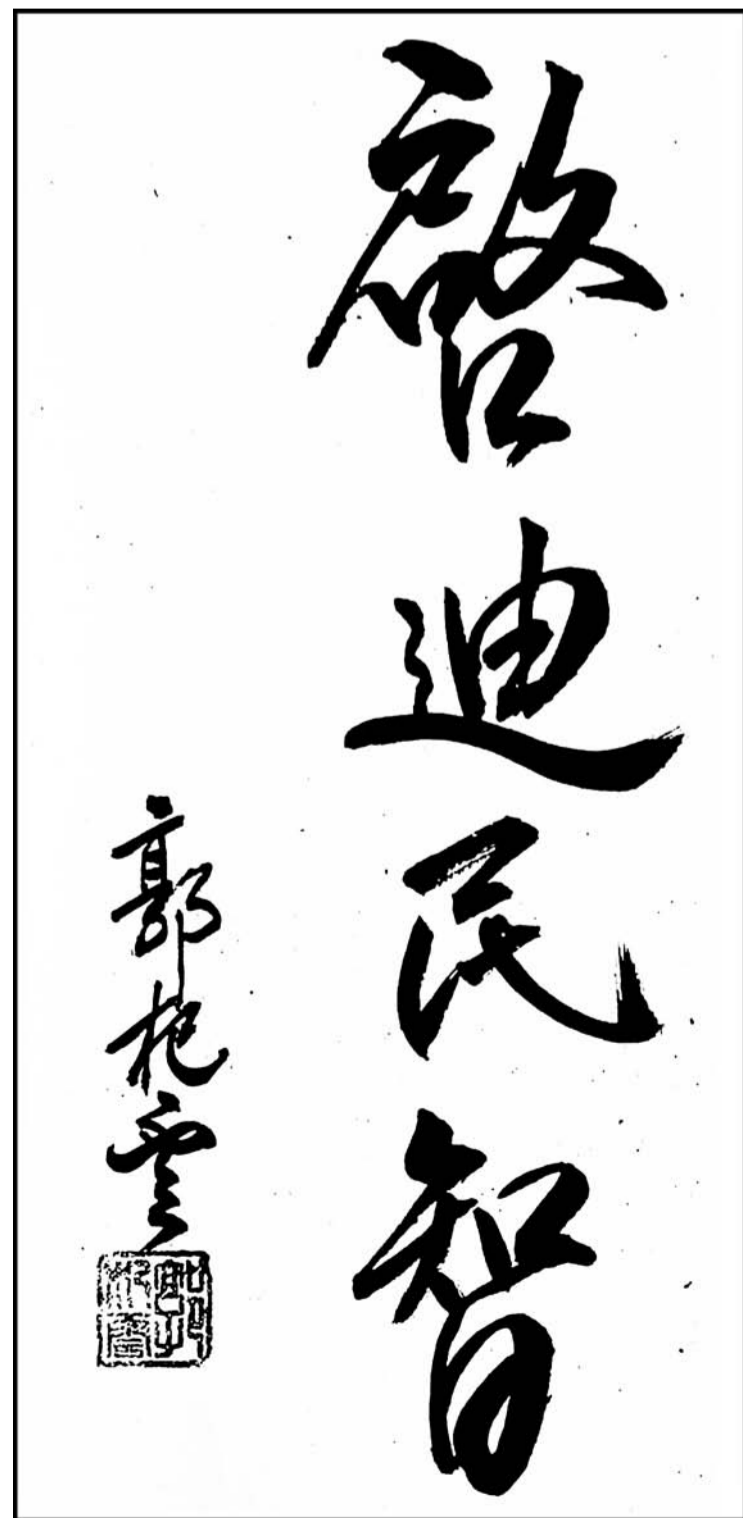 啓迪民智
郭杞雲